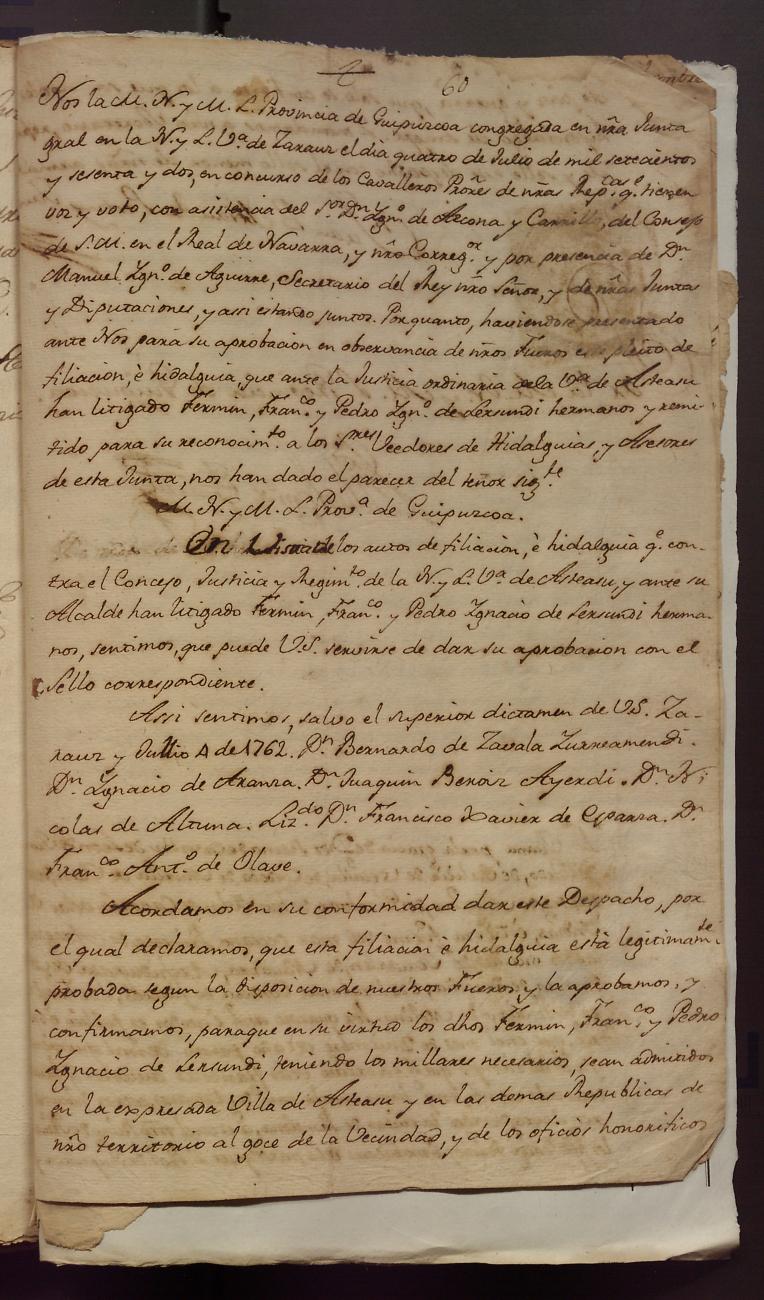 60
Nos la M. N. y M. L. Provincia de Guipuzcoa congregada en nrã Junta
gral en la N. y L. V.ª de Zarauz el dia quatro de Julio de mil setecientos
y sesenta y dos, en concurso de los Cavalleros Prorês de nrâs Rep.cas q.e tienen
voz y voto, con asistencia del S.or D.n Ygn.o de Azcona y Carrillo, del Consejo
de S. M. en el Real de Navarra, y nrô Correg.or y por presencia de D.n
Manuel Ygn.o de Aguirre, Secretario del Rey nrô Señor, y de nrâs Juntas
y Diputaciones, y assi estando juntos. Por quanto, haviendose presentado
ante Nos para su aprobacion en observancia de nrôs Fueros este pleito de
filiacion, è hidalguia, que ante la Justicia ordinaria de la V.ª de Asteasu
han litigado Fermin, Fran.co y Pedro Ygn.o de Lersundi hermanos y remi-
tido para su reconocim.to a los S.res Veedores de Hidalguias, y Asesores
de esta Junta, nos han dado el parecer del tenor sig.te
M. N. y M. L. Prov.ª de Guipuzcoa.
En Vista de los autos de filiacion, è hidalguia q.e con-
tra el Concejo, Justicia y Regim.to de la N. y L. V.ª de Asteasu, y ante su
Alcalde han litigado Fermin, Fran.co y Pedro Ygnacio de Lersundi herma-
nos, sentimos, que puede V.S. servirse de dar su aprobacion con el
Sello correspondiente.
Assi sentimos, salvo el superior dictamen de V.S. Za-
rauz y Jullio 4 de 1762. D.n Bernardo de Zavala Zurreamendi.
D.n Ygnacio de Aranza. D.n Juaquin Benoiz Ayerdi. D.n Ni
colas de Altuna. Liz.do D.n Francisco Xavier de Esparza. D.n
Fran.co Ant.o de Olave.
Acordamos en su conformidad dar este Despacho, por
el qual declaramos, que esta filiacion è hidalguia està legitimam.te
probada segun la disposicion de nuestros Fueros y la aprobamos, y
confirmamos, paraque en su virtud los dhos Fermin, Fran.co y Pedro
Ygnacio de Lersundi, teniendo los millares necesarios, sean admitidos
en la expresada Villa de Asteasu y en las demas Republicas de
nrô territorio al goce de la Vecindad, y de los oficios honorificos